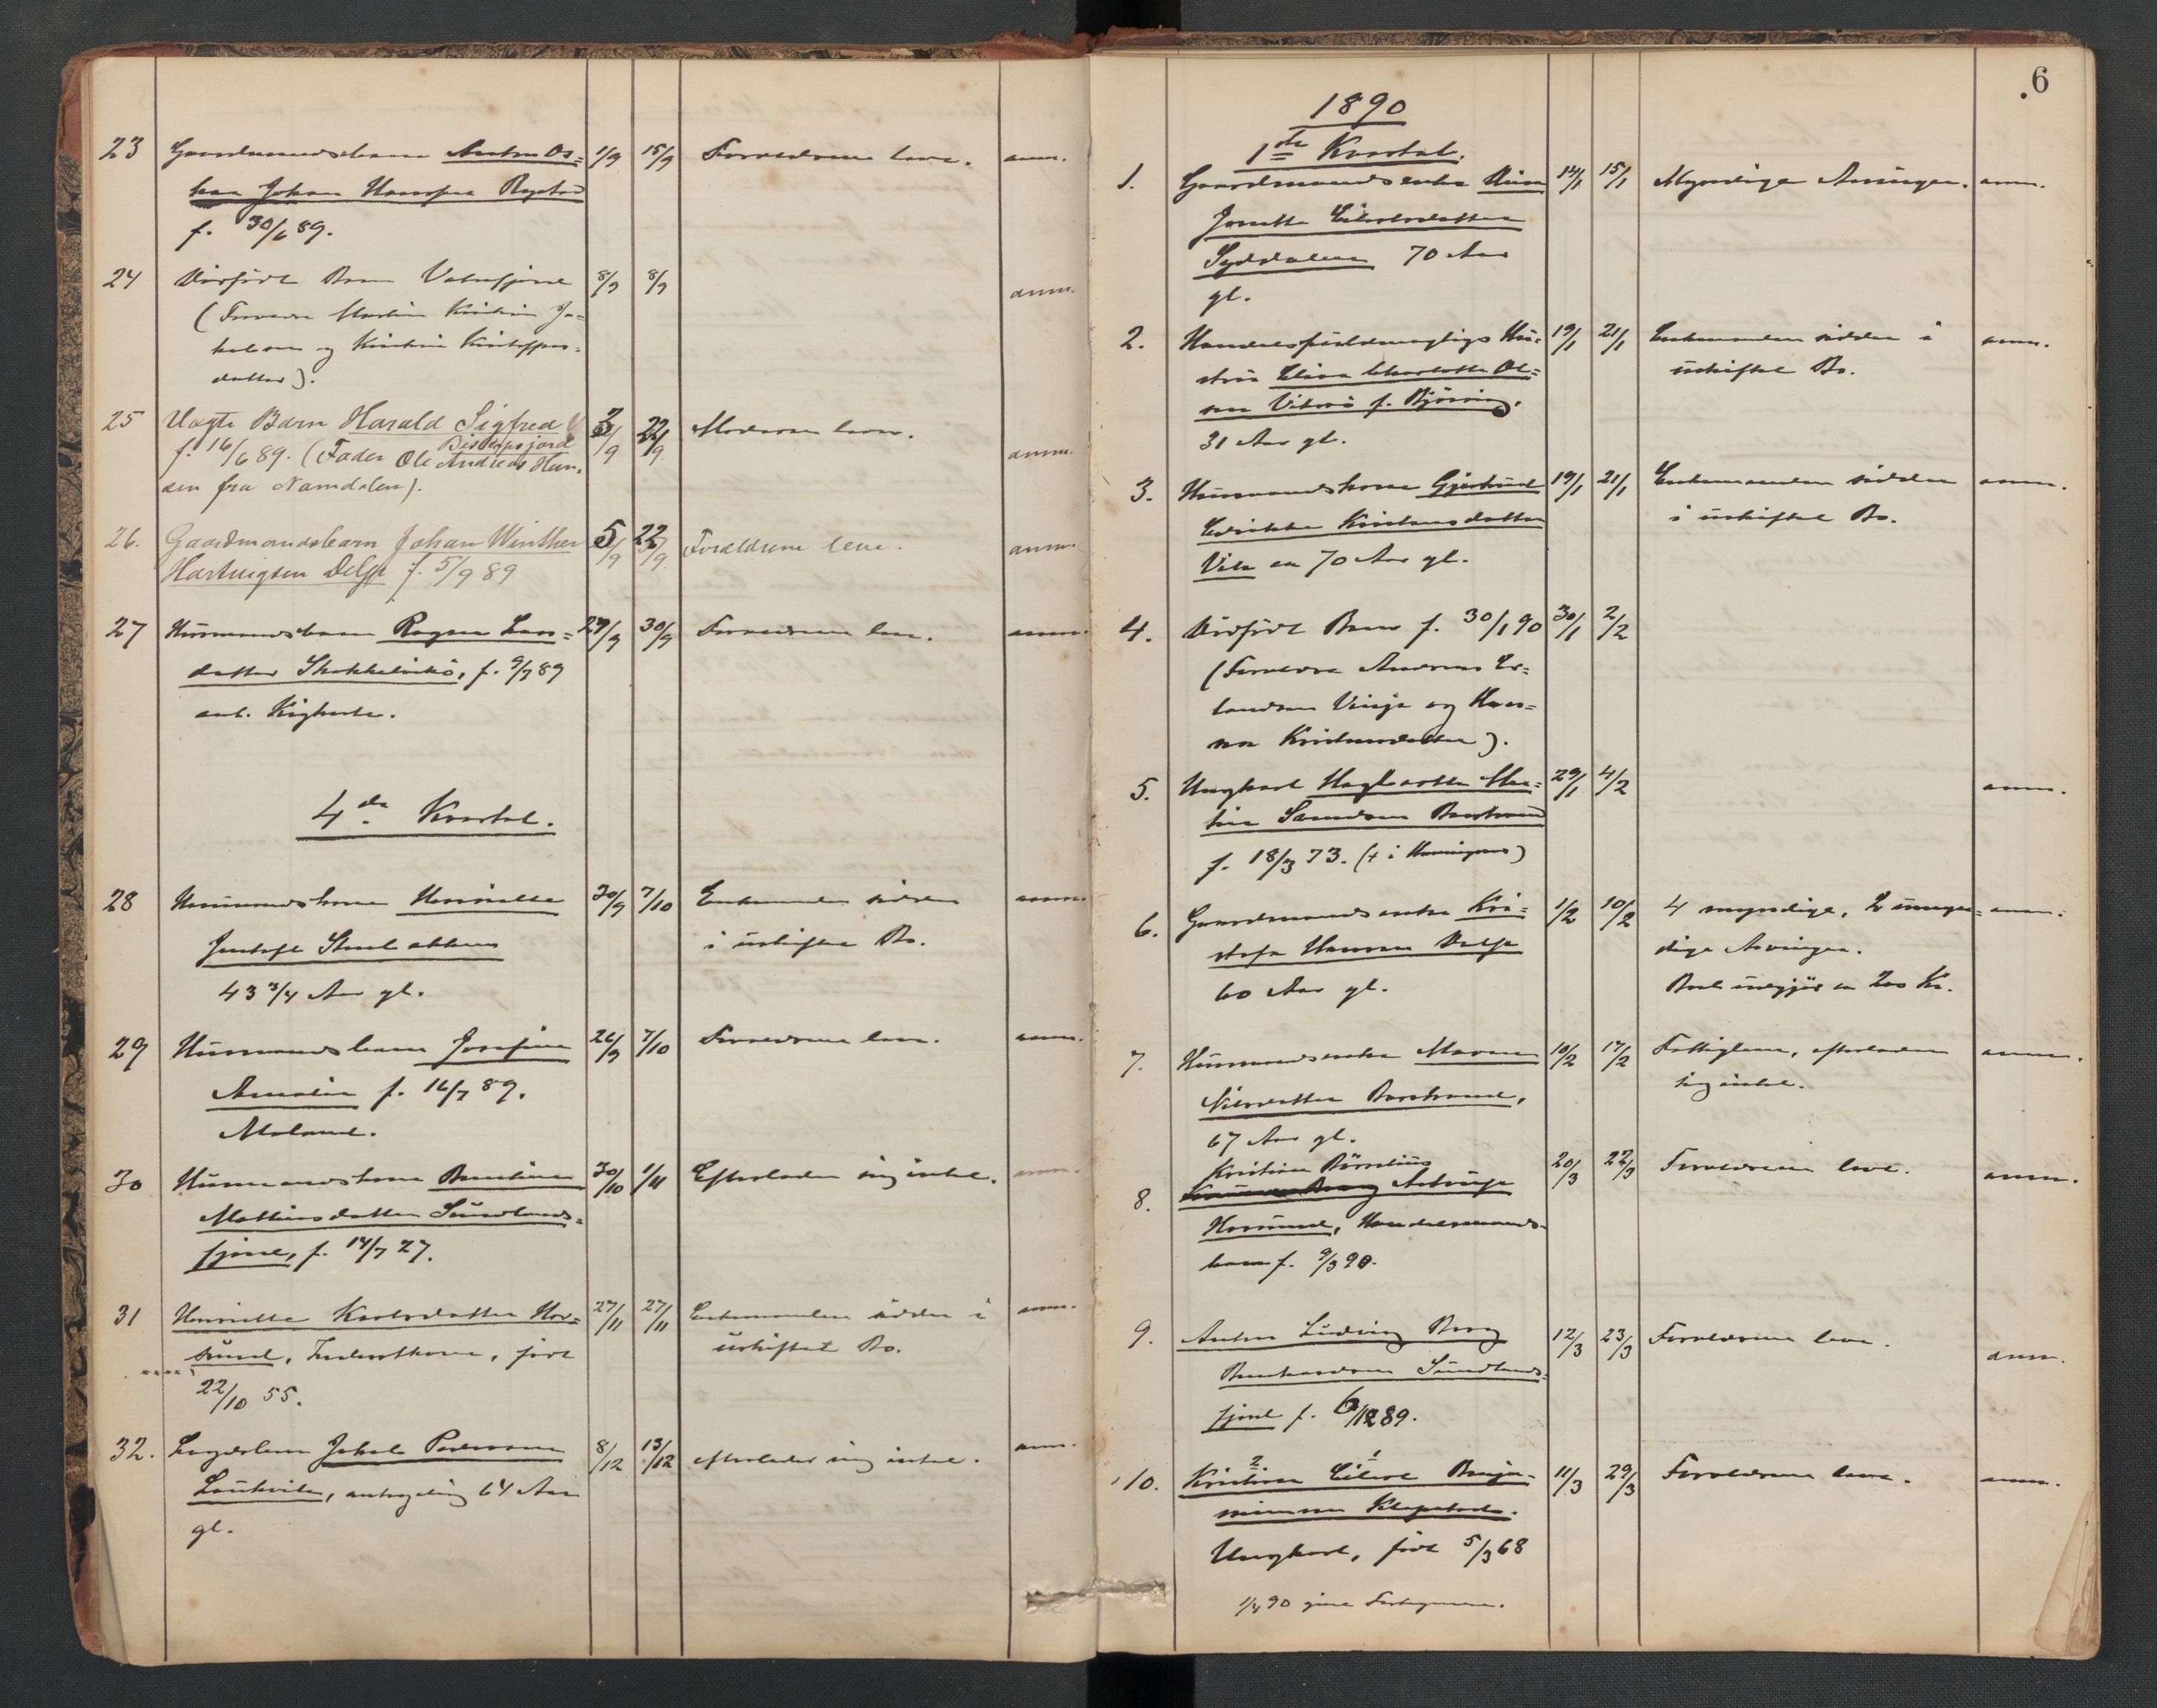 23 Gaardmandsbarn Anton Os= 1/9 15/9 Forældrene leve. anm.
kar Johan Hansen
f. 30/6 89.
24 Dødfødt Barn Vatnfjord 8/9 8/9 anm.
(Forældre Martin Kristian Ja=
kobsen og Kristine Kristoffers=
datter).
25 Uægte Barn Harald Sigfred 3/9 22/9 Moderen lever. anm.
Bispesjord
f. 16/6 89. (Fader Ole Andreas Han=
sen fra Namdalen).
26. Gaardmandsbarn Johan Winther 5/9 22/9 Forældrene leve. anm.
Hartvigsen Delp f. 5/9 89
27 Husmandsbarn Ragna Lars= 27/9 30/9 Forældrene leve. anm.
datter f. 9/7 89
anb. Kighoste.
4de Kvartal.
28 Husmandskone Henriette 30/9 7/10 Enkemanden sidder anm.
Jentoft
i uskiftet Bo.
43 3/4 Aar gl.
29 Husmandsbarn Josefine 26/9 7/10 Forældrene leve. anm.
Amalie f. 16/7 89.
30 Husmandskone Bentine 30/10 1/11 Efterlader sig intet. anm.
Mathiasdatter Sundlands=
fjord, f. 14/7 27.
31 Henriette Karlsdatter Hor= 27/11 27/11 Enkemanden sidder i anm.
sund, født
uskiftet Bo.
22/10 55.
32. Lægdslem Jakob Pedersen 8/12 13/12 efterlader sig intet. anm.
antagelig 64 Aar
gl.
6.
1890
1ste Kvartal.
1. Gaardmandsenke 14/1 15/1 Myndige Arvinger. anm.
Jonette Eilertsdatter
Syddalen 70 Aar
gl.
2. Handelsfuldmægtigs Hu= 19/1 21/1 Enkemanden sidder i anm.
stru Elise Charlotte Ol=
uskiftet Bo.
sen f.
31 Aar gl.
3. Husmandskone Gjertrud 19/1 21/1 Enkemanden sidder anm.
Kristensdatter
i uskiftet Bo.
70 Aar gl.
4. Dødfødt Barn f. 30/1 90 30/1 2/2
(Forældre Andreas Er=
landsen og Han=
na Kristensdatter).
5. Ungkarl Hagbarth Mar= 29/1 4/2 anm.
tin
f. 18/3 73. (+ i Henningsvær)
6. Gaardmandsenke Kri= 1/2 10/2 4 myndige, 2 umyn= anm.
stofa Hansen Delp
dige Arvinger.
60 Aar gl.
Boet udgjør ca 200 Kr.
7. Husmandsenke Maren 10/2 17/2 Fattiglem, efterlader anm.
Nilsdatter Borstrand,
sig intet.
67 Aar gl.
Kristian
8. 20/3 22/3 Forældrene leve. anm.
Horsund, Handelsmands=
barn f. 9/3 90.
9. Anton Ludvig Berg 12/3 23/3 Forældrene leve. anm.
Bernhardsen Sundlands=
fjord f. 6/12 89.
2. 1
10. Kristian Eilert Benja= 11/3 29/3 Forældrene leve. anm.
minsen
Ungkarl, født 5/3 68
1/4 90 givet Fortegnelse.